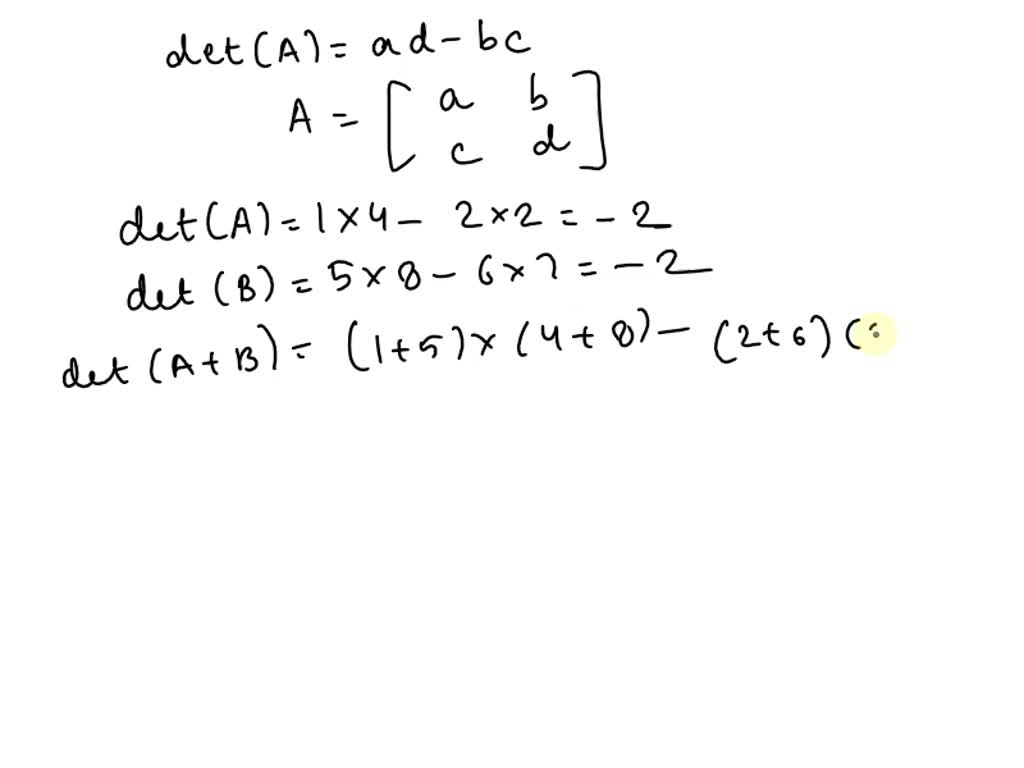 det(A) = ad - bc
A = [ a b
c d ]
det(A) = 1 × 4 - 2 × 2 = - 2
det (B) = 5 × 8 - 6 × 7 = - 2
det (A + B) = (1 + 5) × (4 + 8) - (2 + 6) (